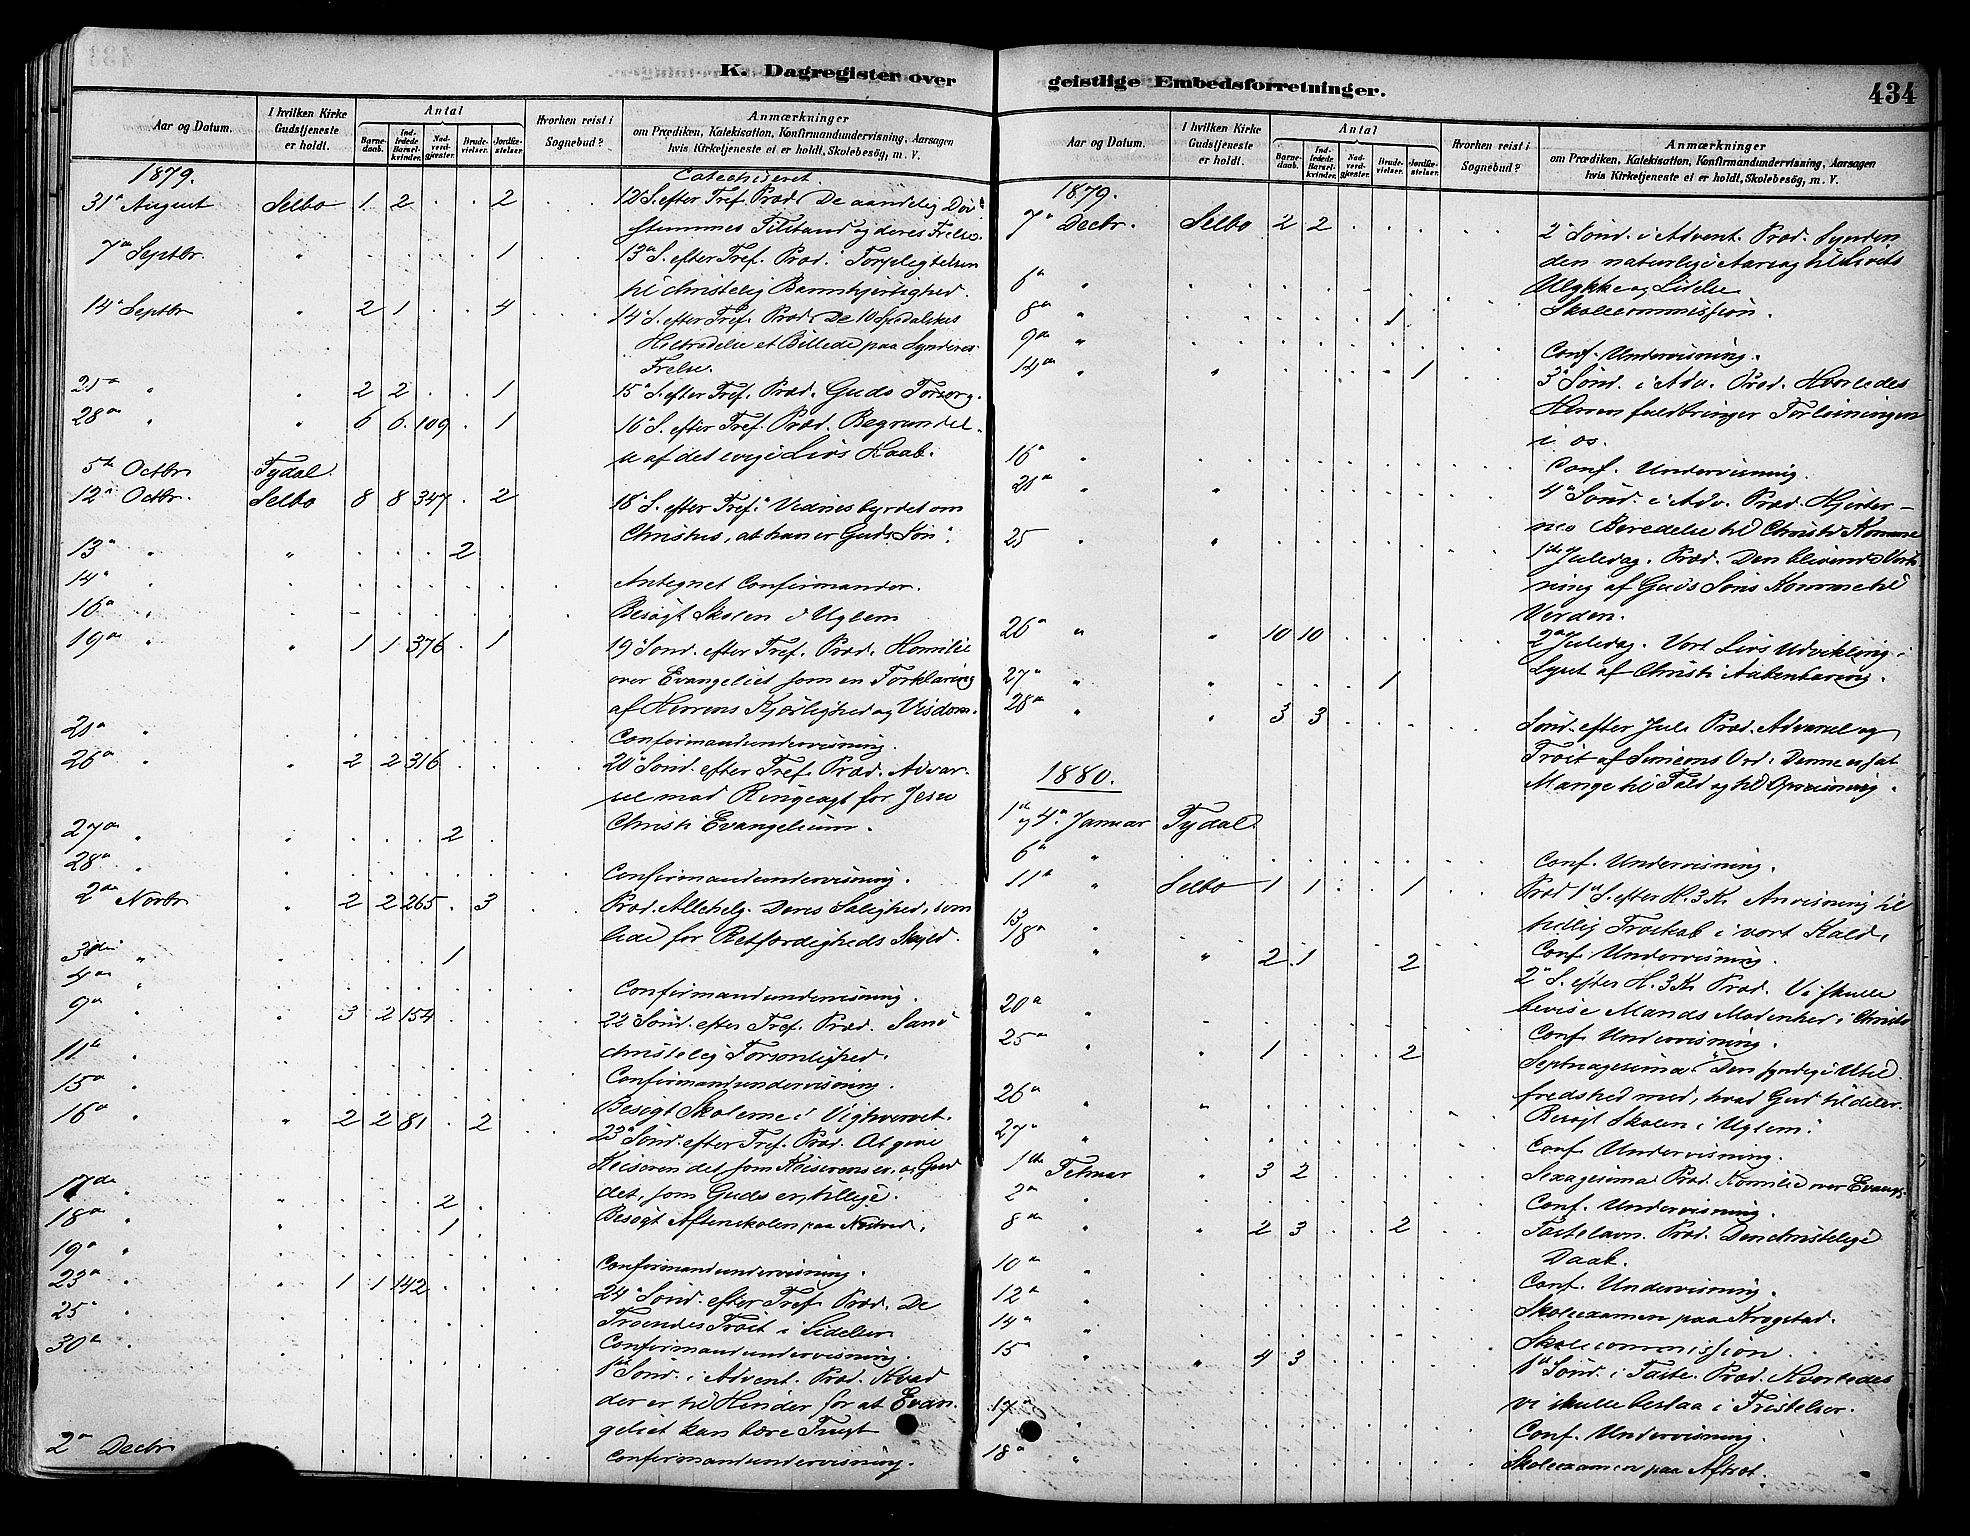 K. Dagregister over
Aar og Datum.
I hvilken Kirke Gudstjeneste er holdt.
Antal
Barnedaab.
Indledede Barselkvinder.
Nadverdgjester.
Brudevielser.
Jordfæstelser.
Hvorhen reist i Sognebud?
Anmærkninger
om Prædiken, Katekisation, Konfirmandundervisning, Aarsagen
hvis Kirketjeneste ei er holdt, Skolebesøg, m. V.
1879.
Catechiseret
31te August Selbo 1 2 . . 2 12te S. efter Tref. Præd. De aandelig Døv-
stummes Tilstand og deres Frelse.
7de Septbr " . . . . 1 13de S. efter Tref. Præd. Forpligtelsen
til christelig Barmhjertighed.
14de Septbr " 2 1 . . 4 14de S. efter Tref. Præd. De 10 Spedalskes
Helbredelse et Billede paa Synderes
Frelse.
21de " " 2 2 . . 1 15de S. efter Tref. Præd. Guds Forsorg.
28de " " 6 6 109 . 1 16de S. efter Tref. Præd. Begrundel-
se af det evige Livs Haab.
5te Octbr Tydal
12te Octbr. Selbo 8 8 347 . 2 18de S. efter Tref. Vidnesbyrdet om
Christus, at han er Guds Søn.
13de " " . . . 2
14de " Antegnet Confirmander.
16de " Besøgt Skolen i Uglem
19de " " 1 1 376 . 1 19de Sønd. efter Tref. Præd. Homilie
over Evangeliet som en Forklaring
af Herrens Kjærlighed og Visdom.
21de " Confirmandundervisning.
26de " " 2 2 316 . . 20de Sønd. efter Tref. Præd. Advar-
sel mod Ringeagt for Jesu
Christi Evangelium.
27de " " . . . 2
28de " Confirmandundervisning.
2den Novbr " 2 2 265 . 3 Præd. Allehelg. Deres Salighed, som
lide for Retfærdigheds Skyld.
3die " " . . . 1
4de " Confirmandundervisning.
9de " " 3 2 154 . . 22de Sønd. efter Tref. Præd. Sand
christelig Forsonlighed.
11te " Confirmandundervisning.
15de " Besøgt Skolerne i Vighvervet.
16de " " 2 2 81 . 2 23de Sønd. efter Tref. Præd. At give
Keiseren det som Keiserens er, og Gud
det, som Guds er, tillige.
17de " " . . . 2
18de " " . . . 1 Besøgt Aftenskolen paa
19de " Confirmandundervisning.
23de " " 1 1 142 . . 24de Sønd. efter Tref. Præd. De
Troendes Trøst i Lidelser
25de " Confirmandundervisning.
30te " 1ste Sønd. i Advent. Præd. Hvad
der er til Hinder for at Evan-
geliet kan bære Frugt
2den Decbr Confirmandundervisning.
geistlige Embedsforretninger.
434
Aar og Datum.
I hvilken Kirke Gudstjeneste er holdt.
Antal
Barnedaab.
Indledede Barselkvinder.
Nadverdgjester.
Brudevielser.
Jordfæstelser.
Hvorhen reist i Sognebud?
Anmærkninger
om Prædiken, Katekisation, Konfirmandundervisning, Aarsagen
hvis Kirketjeneste ei er holdt, Skolebesøg, m. V.
1879.
7de Decbr. Selbo 2 2 . . . 2den Sønd. i Advent. Præd. Synden
den naturlige Aarsag til Livets
Ulykke og Lidelse
6te " Skolecommission.
8de " . . . 1
9de " Conf. Undervisning.
14de " " . . . . 1 3die Sønd. i Adv. Præd. Hvorledes
Herren fuldbringer Forløsningen
i os.
16de " Conf. Undervisning.
21de " " 4de Sønd. i Adv. Præd. Hjerter-
nes Beredelse til Christi Komme
25 " " 1ste Juledag. Præd. Den blivende Virk-
ning af Guds Søns Komme til
Verden.
26de " " 10 10 . . . 2den Juledag. Vort Livs Udvikling i
Lyset af Christi Aabenbaring.
27de " " . . . 1
28de " " 3 3 . . . Sønd. efter Jul. Præd. Advarsel og
Trøst af Simeons Ord: Denne er sat
Mange til Fald og til Opreisning.
1880.
1ste og 4de Januar Tydal
6te " Conf. Undervisning.
11te " Selbo 1 1 . . 1 Præd 1ste S. efter H. 3 K. Anvisning til
hellig Troskab i vort Kald.
13 " Conf. Undervisning.
18de " " 2 1 . . 2 2den S. efter H. 3 K. Præd. Vi skulle
bevise Mands Modenhed i Christo
20de " Conf. Undervisning.
25de " " 1 . . . 2 Septuagesima Den syndige Util-
fredshed med, hvad Gud tildeler.
26de " " Besøgt Skolen i Uglem.
27de " Conf. Undervisning.
1ste Februar " 3 2 . . . Sexagesima Præd. Homilie over Evang.
2den " Conf. Undervisning.
8de " " 2 3 . . 2 Fastelavn. Præd. Den christelige
Daab.
10de " Conf. Undervisning.
12te " Skoleexamen paa Krogstad.
14de " Skolecommission.
15de " " 4 3 . . . 1ste Sønd. i Faste. Præd. Hvorledes
vi skulle bestaa i Fristelser.
17de " Conf. Undervisning.
18de " Skoleexamen paa Aftret.